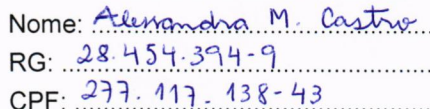 Nome: Alessandra M. Castro
RG: 28.454.394-9
CPF: 277.117.138-43